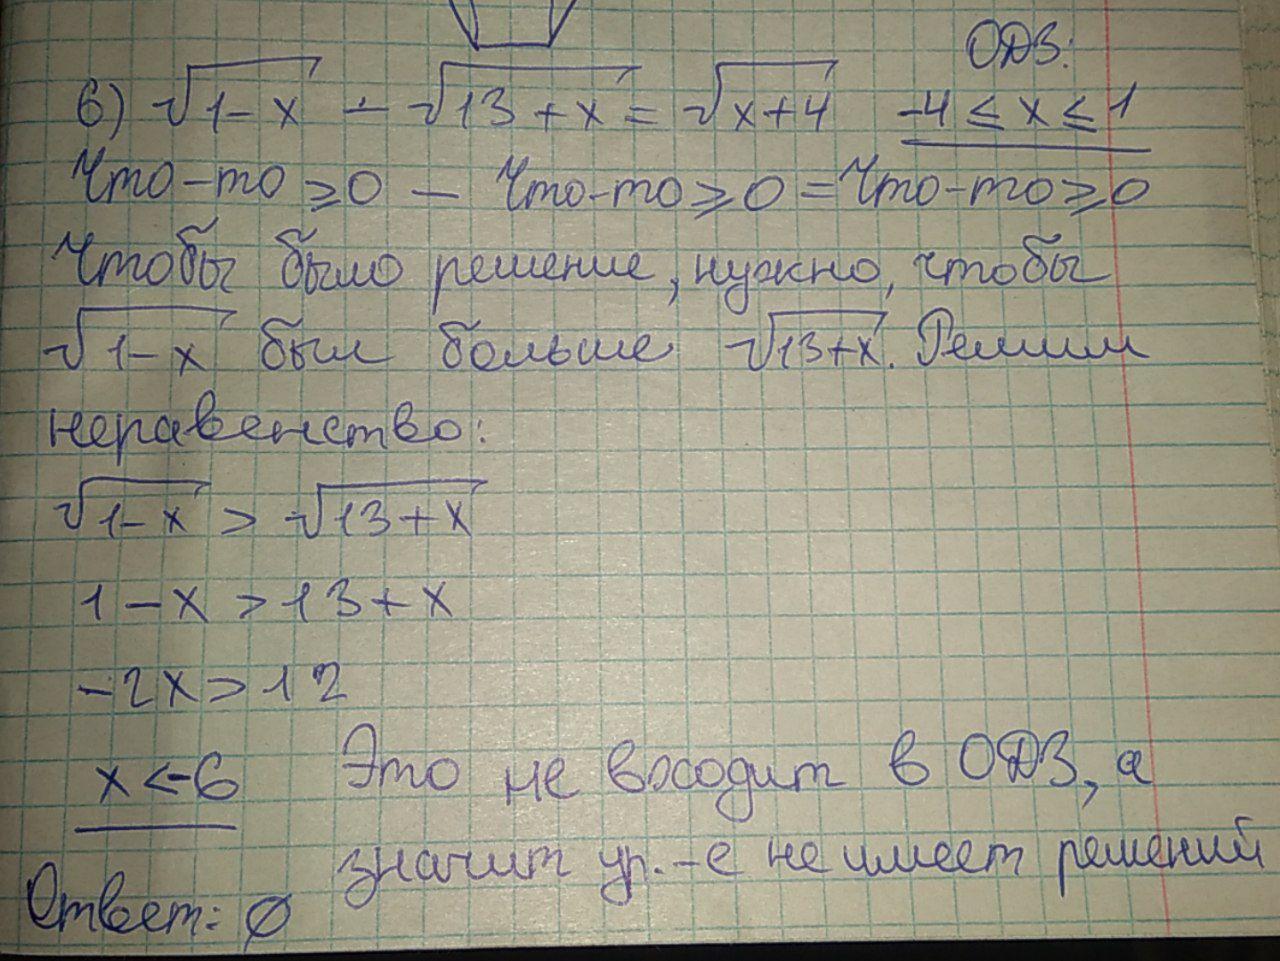 ОДЗ:
6) √1-x - √13+x = √x+4   -4 ≤ x ≤ 1
Что-то ≥0 - Что-то ≥0 = Что-то ≥0
Чтобы было решение, нужно, чтобы
√1-x был больше √13+x. Решим
неравенство:
√1-x > √13+x
1-x > 13+x
-2x > 12
x < -6   Это не входит в ОДЗ, а
значит ур.-е не имеет решений
Ответ: ∅